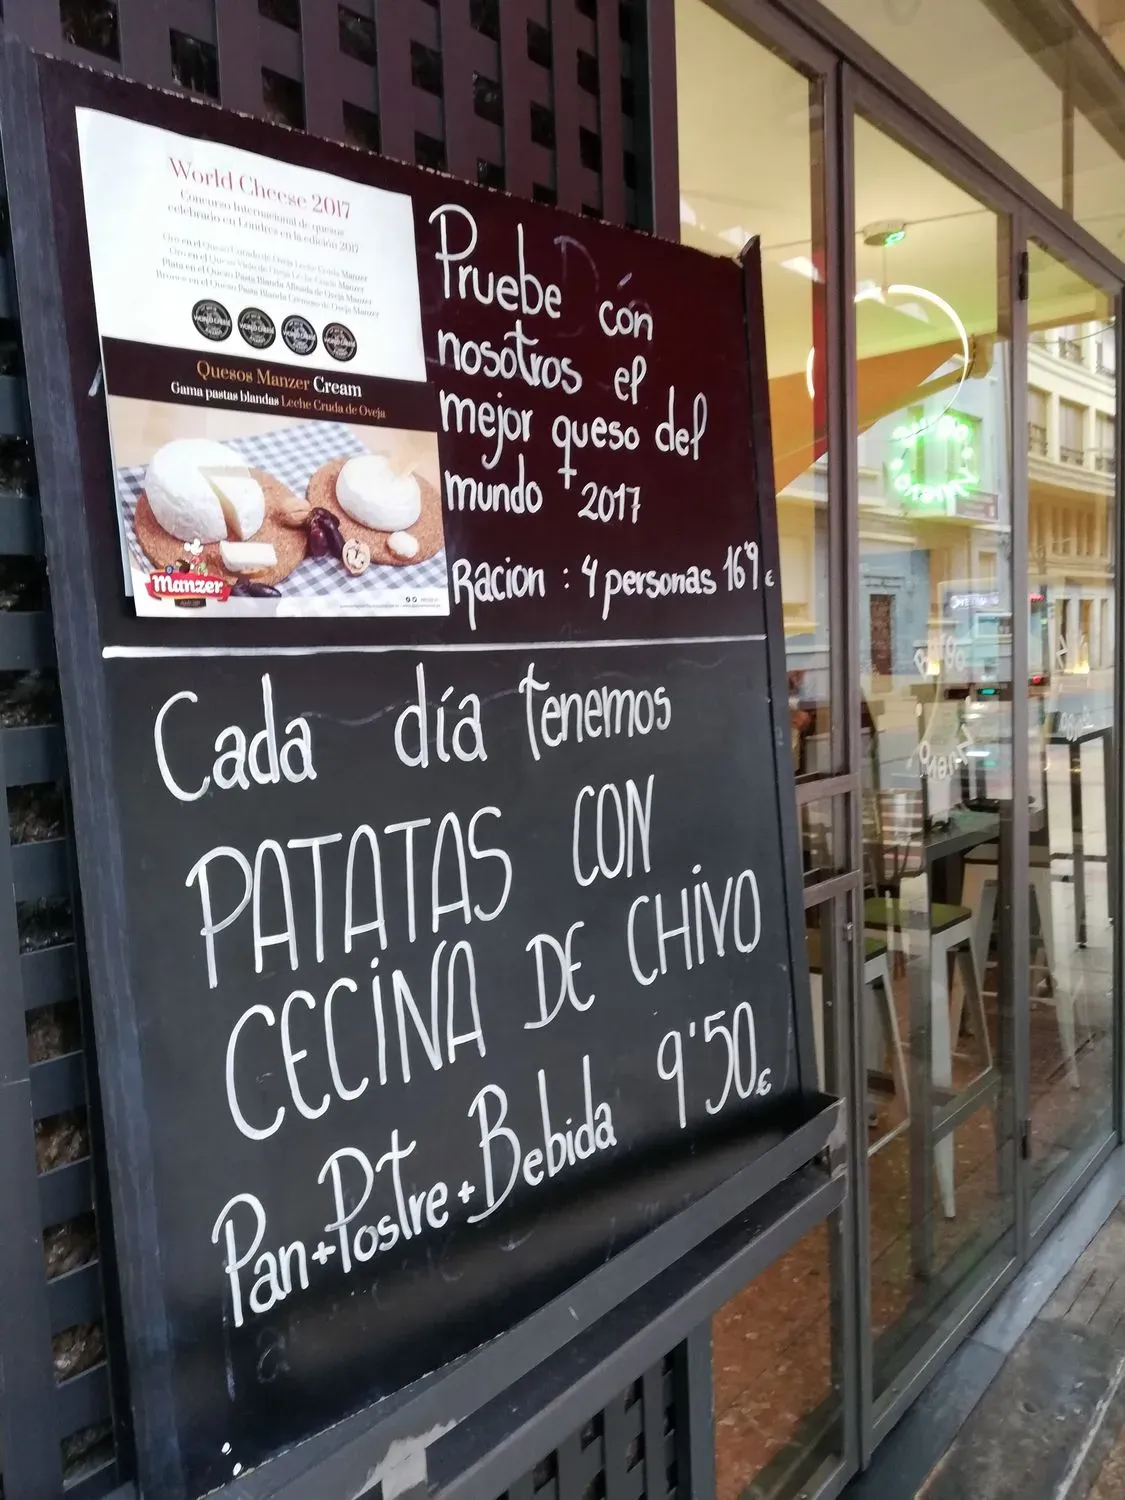 World Cheese 2017
Concurso Internacional de quesos
celebrado en Londres en la edición 2017
Oro en el Queso Curado de Oveja Leche Cruda Manzer
Oro en el Queso Viejo de Oveja Leche Cruda Manzer
Plata en el Queso Pasta Blanda Albada de Oveja Manzer
Bronce en el Queso Pasta Blanda Cremoso de Oveja Manzer
Quesos Manzer Cream
Gama pastas blandas Leche Cruda de Oveja
Manzer
Pruebe con
nosotros el
mejor queso del
mundo 2017
Racion : 4 personas 16'9 €
Cada día tenemos
PATATAS CON
CECINA DE CHIVO
Pan+Postre+Bebida 9'50 €